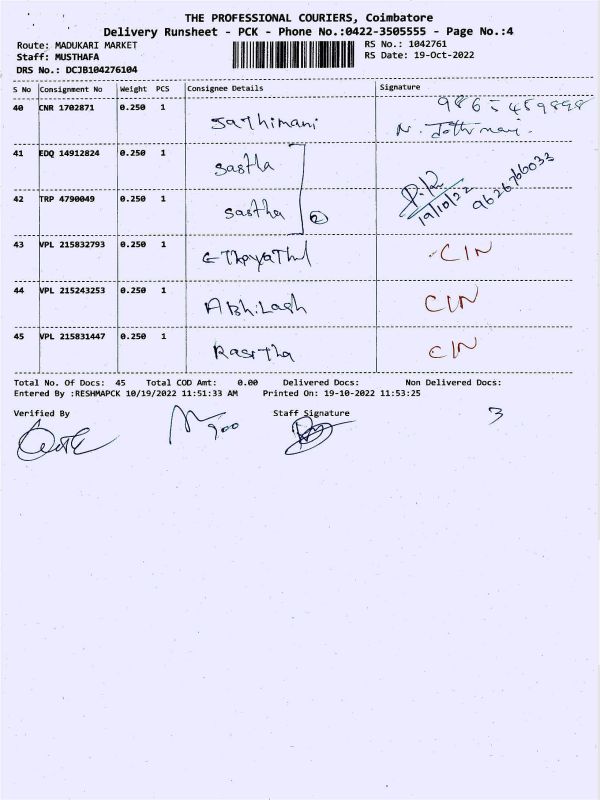 THE PROFESSIONAL COURIERS, Coimbatore
Delivery Runsheet - PCK - Phone No.:0422-3505555 - Page No.:4
Route: MADUKARI MARKET
RS No.: 1042761
Staff: MUSTHAFA
RS Date: 19-Oct-2022
DRS No.: DCJB104276104
S No Consignment No Weight PCS Consignee Details Signature
40 CNR 1702871 0.250 1 Sathimani 9865459898
N. Jothimani.
41 EDQ 14912824 0.250 1 Sastha
42 TRP 4790049 0.250 1 Sastha 2 19/10/22 9626766033
43 VPL 215832793 0.250 1 CIN
44 VPL 215243253 0.250 1 Abhilash CIN
45 VPL 215831447 0.250 1 Rasitha CIN
Total No. Of Docs: 45 Total COD Amt: 0.00 Delivered Docs: Non Delivered Docs:
Entered By :RESHMAPCK 10/19/2022 11:51:33 AM Printed On: 19-10-2022 11:53:25
Verified By Staff Signature 3